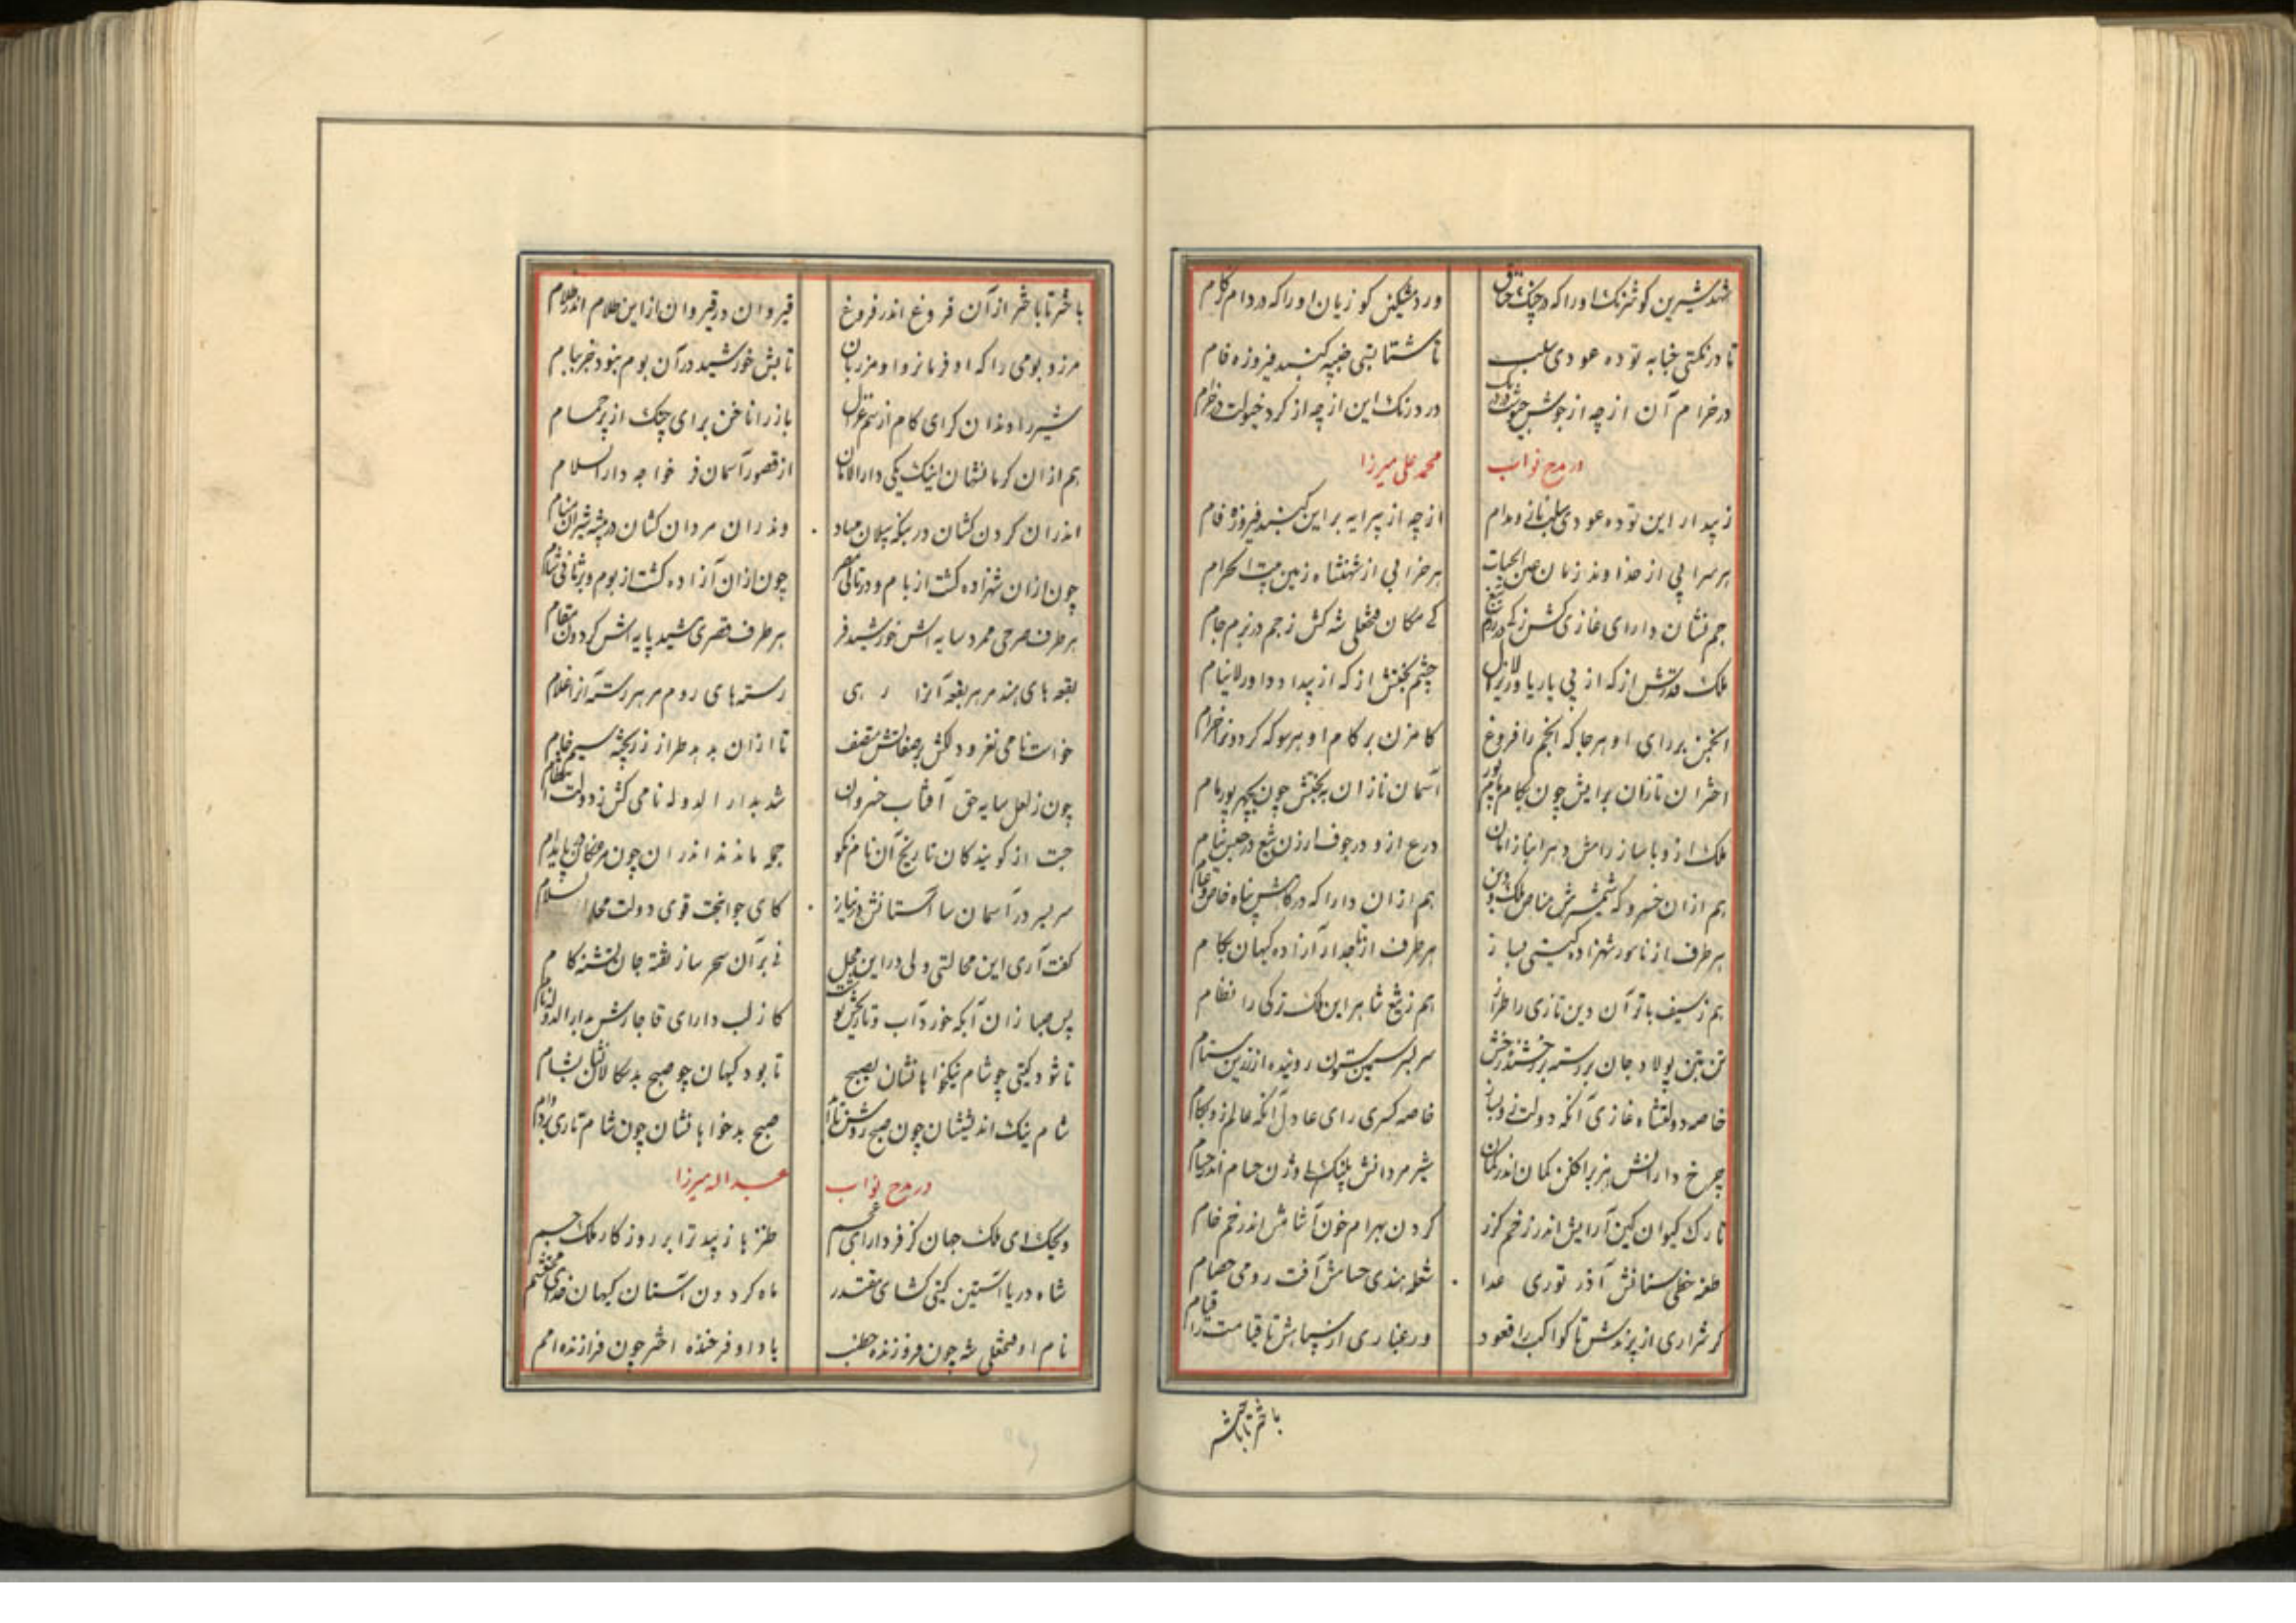 شهد شیرین کو شرنک اورا که در چنک
ورد مشکین کو زیان اورا که در دام زکام
تا درنکتی توده عودی سلب
تا شتا بتی کنبد فیروزه فام
درخرام آن از چه از جوش
در درنک این از چه از کرد خیولت در خرام
در مدح نواب
محمد علی میرزا
زیبد ار این توده عودی سلب نازد مدام
از چه از پیرایه بر این کنبد فیروزه فام
هر سرابی از خداوند زمان عین الحیات
هر خرابی از شهنشاه زمین بیت الحرام
جم نشان دارای غازی کش ز کی در رزم تیغ
کی مکان فتحعلی شه کش ز جم در بزم جام
ملک قدرتش از که از بی یار یاور لایزال
چشم بختش از که از بیدار داور لاینام
انجمن بر رای او هر جا که انجم را فروغ
کامزن بر کام او هر سو که کردونرا خرام
اختران تازان برایش چون بکام باب پور
آسمان نازان ببختش چون بچهر پور مام
ملک از و با ساز رامش دهر انباز امان
درع ازو در جوف ارزن تیغ در حبس نیام
هم ازان خسرو که شمشیرش مناص ملک و دین
هم ازان دارا که درکاهش پناه خاص و عام
هر طرف از نامور شهزاده کیتی بساز
هر طرف از تاجدار آزاده کیهان بکام
هم ز سیف باتر آن دین تازی را طراز
هم ز تیغ شاهر این ملک ترکی را نظام
تن بتن پولاد جان بر رسته بر خشنده رخش
سر بسر سیمین ستون روینده از زرین ستام
خاصه دولتشاه غازی آنکه دولت زو بساز
خاصه کسری رای عادل آنکه عالم زو بکام
چرخ دارانش هژبر افکن کمان اندر کمان
شیر مردانش پلنک اوژن حسام اندر حسام
تارک کیوان کین آرایش اندر زخم کرز
کردن بهرام خون آشامش اندر خم خام
طعنه خطی سنانش آذر توری عدا
شعله هندی حسامش آفت رومی خصام
کر شراری از پرندش تا کواکب را قعود
ور غباری از سپاهش تا قیامت را قیام
باختر تا باختر
باختر تا باختر از آن فروغ اندر فروغ
قیروان در قیروان از این ظلام اندر ظلام
مرز و بومی را که او فرمانروا و مرزبان
تابش خورشید در آن بوم نبود جز ببام
شیر را دندان کرای کام از ستم غزال
باز را ناخن برای چنک از بر حمام
هم ازان کرمانشهان اینک یکی دار الامان
از قصور آسمان فر خواجه دار السلام
اندران کردن کشان در پیلان مهاد
وندران مردان کشان در بیشه شیران منام
چون ازان شهزاده کشت از بام و در تالی مصر
چون ازان آزاده کشت از بوم و بر ثانی شام
هر طرف صرحی ممرد سایه اش خورشید فر
هر طرف قصری مشید پایه اش کردون مقام
بقعه های هند مر هر بقعه آنرا رهی
رسته های روم مر هر رسته آنرا غلام
خواست نامی نغز و دلکش بر صفاتش متصف
تا ازان بدهد طراز زر پخته سیم خام
چون ز لعل سایه حق آفتاب خسروان
شد بدار الدوله نامی کش ز دولت انتظام
جست از کویندکان تاریخ آن نام نکو
جمله ماندند اندران چون مرغکان پا بدام
سر بسر در آسمان سا آستانش در نیاز
کای جوانبخت قوی دولت محل السلام
کفت آری این محالستی ولی در این محل
نی بر آن سحر ساز تفته جان تشنه کام
پس صبا زان آبکه خورد آب و تاریخش نوشت
کاز لب دارای قاجارش بدار الدوله نام
تا شود کیتی چو شام نیکخواهانشان بصبح
تا بود کیهان چو صبح بدسکالانشان بشام
شام نیک اندیششان چون صبح روشن تابناک
صبح بدخواهانشان چون شام تاری بر دوام
در مدح نواب
عبد اله میرزا
ویحک ای ملک جهان کز فر دارای عجم
طنزها زیبد ترا بر روزکار ملک جم
شاه دریا آستین کیتی کشای مقتدر
ماه کردون آستان کیهان خدای محتشم
نام او فتحعلی شه چون فروزنده خطب
یاد او فرخنده اختر چون فرازنده امم